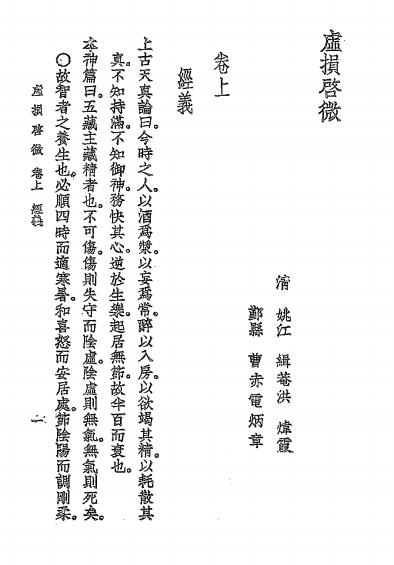 虛損啓微
清 姚江 緝菴洪 煒霞
鄞縣 曹赤電炳章
卷上
經義
上古天真論曰。今時之人。以酒爲漿。以妄爲常。醉以入房。以欲竭其精。以耗散其
真。不知持滿。不知御神。務快其心。逆於生樂。起居無節。故半百而衰也。
本神篇曰。五藏主藏精者也。不可傷。傷則失守而陰虛。陰虛則無氣。無氣則死矣。
〇故智者之養生也。必順四時而適寒暑。和喜怒而安居處。節陰陽而調剛柔。
虛損啓微 卷上 經義 一